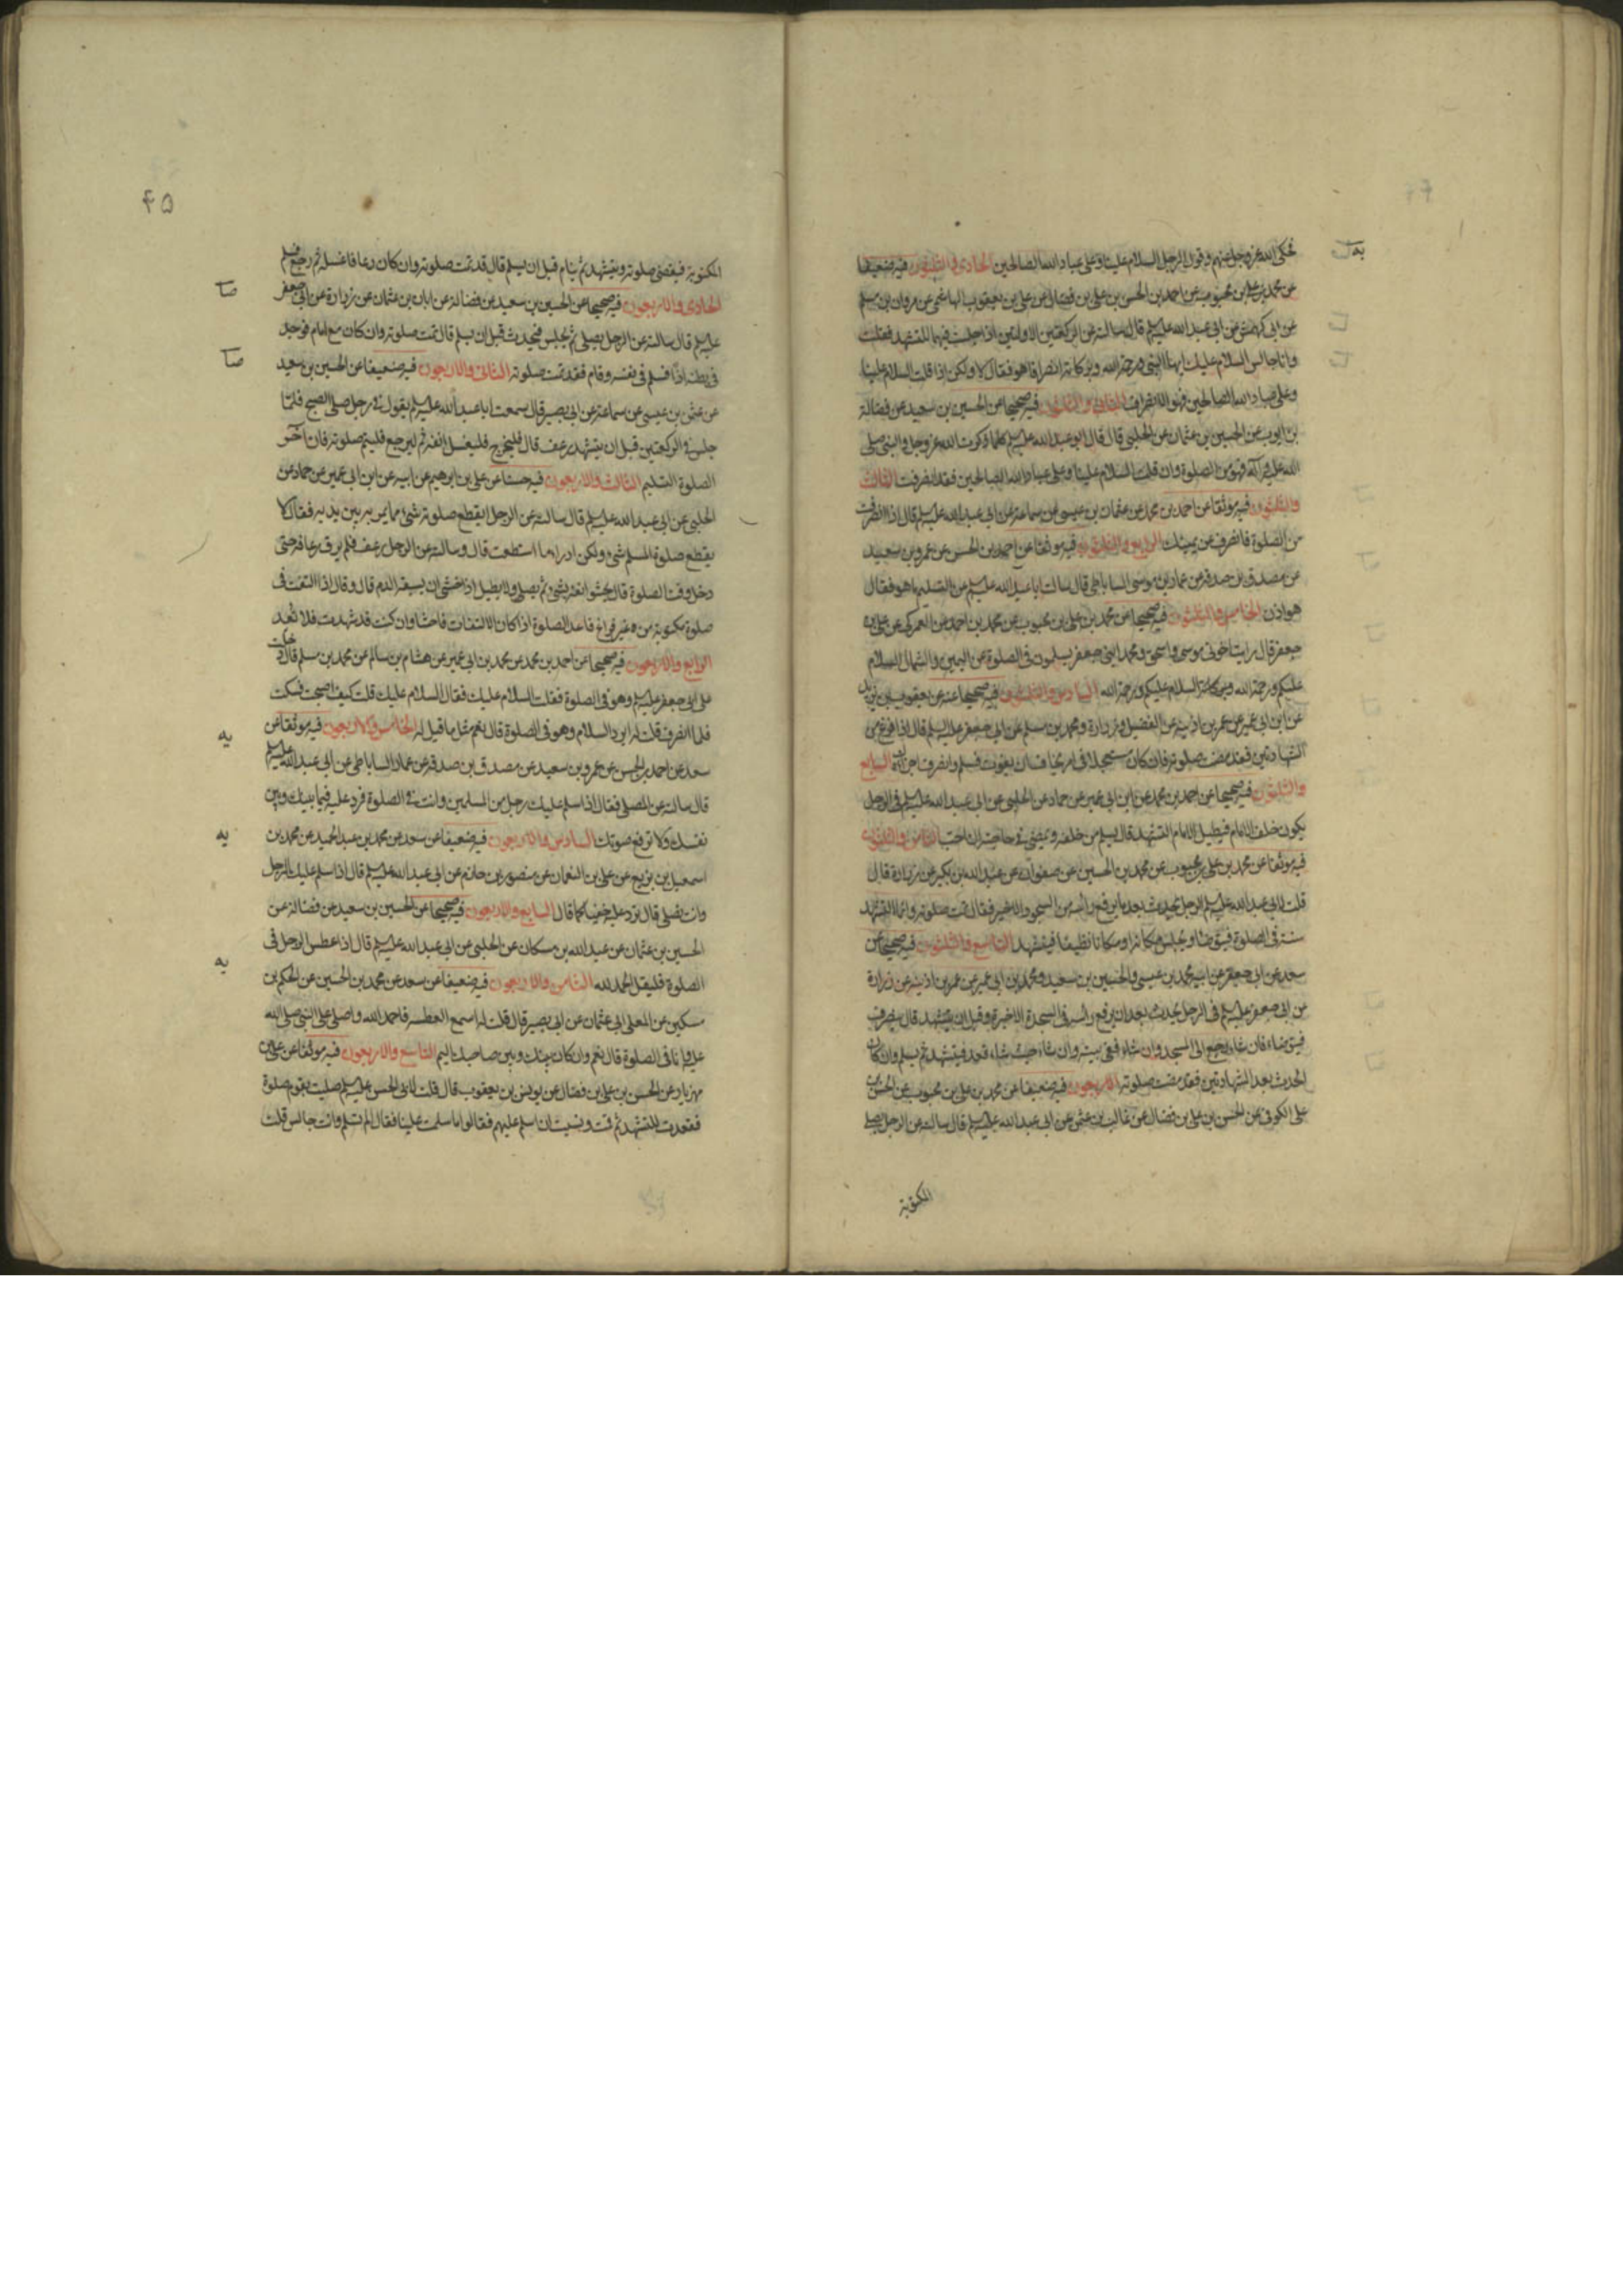 فحكى الله عز وجل عنهم وقول الرجل السلام علينا وعلى عباد الله الصالحين الحادى والثلثون فيه ضعيفا
عن محمد بن على بن محبوب عن احمد بن الحسن بن على بن فضال عن على بن يعقوب الهاشمى عن مروان بن مسلم
عن ابى كهمش عن ابى عبد الله عليه السلم قال سالته عن الركعتين الاولتين اذا جلست فيهما للتشهد فقلت
وانا جالس السلام عليك ايها النبى ورحمة الله وبركاته انصراف هو فقال لا ولكن اذا قلت السلام علينا
وعلى عباد الله الصالحين فهو الانصراف الثانى والثلثون فيه صحيحا عن الحسين بن سعيد عن فضالة
بن ايوب عن الحسين بن عثمان عن الحلبى قال قال ابو عبد الله عليه السلم كلما ذكرت الله عز وجل والنبى صلى
الله عليه وآله فهو من الصلوة وان قلت السلام علينا وعلى عباد الله الصالحين فقد انصرفت الثالث
والثلثون فيه موثقا عن احمد بن محمد عن عثمان بن عيسى عن سماعة عن ابى عبد الله عليه السلم قال اذا انصرفت
من الصلوة فانصرف عن يمينك الرابع والثلثون فيه موثقا عن احمد بن الحسن عن عمرو بن سعيد
عن مصدق بن صدقة عن عمار بن موسى الساباطى قال سالت ابا عبد الله عليه السلم عن التسليم ما هو فقال
هو اذن الخامس والثلثون فيه صحيحا عن محمد بن على بن محبوب عن محمد بن احمد عن العمركى عن على بن
جعفر قال رايت اخوتى موسى واسحق ومحمد ابنى جعفر يسلمون فى الصلوة عن اليمين والشمال السلام
عليكم ورحمة الله وبركاته السلام عليكم ورحمة الله السادس والثلثون فيه صحيحا عنه عن يعقوب بن يزيد
عن ابن ابى عمير عن عمر بن اذينة عن الفضيل وزرارة ومحمد بن مسلم عن ابى جعفر عليه السلم قال اذا فرغ من
الشهادتين فقد مضت صلوته فان كان مستعجلا فى امر يخاف ان يفوته فسلم وانصرف اجزاه السابع
والثلثون فيه صحيحا عن احمد بن محمد عن ابن ابى عمير عن حماد عن الحلبى عن ابى عبد الله عليه السلم فى الرجل
يكون خلف الامام فيطيل الامام التشهد قال يسلم من خلفه ويمضى فى حاجته ان احب الثامن والثلثون
فيه موثقا عن محمد بن على بن محبوب عن محمد بن الحسين عن صفوان عن عبد الله بن بكير عن زرارة قال
قلت لابى عبد الله عليه السلم الرجل يحدث بعد ما يرفع راسه من السجود الاخير فقال تمت صلوته وانما التشهد
سنة فى الصلوة فيتوضا ويجلس مكانه او مكانا نظيفا فيتشهد التاسع والثلثون فيه صحيحا عن
سعد عن ابى جعفر عن ابيه محمد بن عيسى والحسين بن سعيد ومحمد بن ابى عمير عن عمر بن اذينة عن زرارة
عن ابى جعفر عليه السلم فى الرجل يحدث بعد ان يرفع راسه فى السجدة الاخيرة وقبل ان يتشهد قال ينصرف
فيتوضاء فان شاء يرجع الى المسجد وان شاء ففى بيته وان شاء حيث شاء قعد فيتشهد ثم يسلم وان كان
الحدث بعد الشهادتين فقد مضت صلوته الاربعون فيه ضعيفا عن محمد بن على بن محبوب عن الحسن بن
على الكوفى عن الحسن بن على بن فضال عن غالب بن عثمن عن ابى عبد الله عليه السلم قال سالته عن الرجل يصلى
المكتوبة
۴۵
المكتوبة فيقضى صلوته ويتشهد ثم ينام قبل ان يسلم قال قد تمت صلوته وان كان رعافا غسله ثم رجع فسلم
الحادى والاربعون فيه صحيحا عن الحسين بن سعيد عن فضالة عن ابان بن عثمان عن زرارة عن ابى جعفر
عليه السلم قال سالته عن الرجل يصلى ثم يجلس فيحدث قبل ان يسلم قال تمت صلوته وان كان مع امام فوجد
فى بطنه اذا فسلم فى نفسه وقام فقد تمت صلوته الثانى والاربعون فيه ضعيفا عن الحسين بن سعيد
عن عثمن بن عيسى عن سماعة عن ابى بصير قال سمعت ابا عبد الله عليه السلم يقول فى رجل صلى الصبح فلما
جلس فى الركعتين قبل ان يتشهد رعف قال فليخرج فليغسل انفه ثم ليرجع فليتم صلوته فان آخر
الصلوة التسليم الثالث والاربعون فيه حسنا عن على بن ابرهيم عن ابيه عن ابن ابى عمير عن حماد عن
الحلبى عن ابى عبد الله عليه السلم قال سالته عن الرجل ايقطع صلوته شىء مما يمر به بين يديه فقال لا
يقطع صلوة المسلم شىء ولكن ادراء ما استطعت قال وسالته عن الرجل رعف فلم يرق رعافه حتى
دخل وقت الصلوة قال يحشو انفه بشىء ثم يصلى ولا يطيل اذا خشى ان يسبقه الدم قال وقال اذا التفت فى
صلوة مكتوبة من غير فراغ فاعد الصلوة اذا كان الالتفات فاحشا وان كنت قد تشهدت فلا تعد
الرابع والاربعون فيه صحيحا عن احمد بن محمد عن محمد بن ابى عمير عن هشام بن سالم عن محمد بن مسلم قال دخلت
على ابى جعفر عليه السلم وهو فى الصلوة فقلت السلام عليك فقال السلام عليك قلت كيف اصبحت فسكت
فلما انصرف قلت له ايرد السلام وهو فى الصلوة قال نعم مثل ما قيل له الخامس والاربعون فيه موثقا عن
سعد عن احمد بن الحسن عن عمرو بن سعيد عن مصدق بن صدقة عن عمار الساباطى عن ابى عبد الله عليه السلم
قال سالته عن المصلى فقال اذا سلم عليك رجل من المسلمين وانت فى الصلوة فرد عليه فيما بينك وبين
نفسك ولا ترفع صوتك السادس والاربعون فيه ضعيفا عن سعد عن محمد بن عبد الحميد عن محمد بن
اسمعيل بن بزيع عن على بن النعمان عن منصور بن حازم عن ابى عبد الله عليه السلم قال اذا سلم عليك الرجل
وانت تصلى قال ترد عليه خفيا كما قال السابع والاربعون فيه صحيحا عن الحسين بن سعيد عن فضالة عن
الحسين بن عثمان عن عبد الله بن مسكان عن الحلبى عن ابى عبد الله عليه السلم قال اذا عطس الرجل فى
الصلوة فليقل الحمد لله الثامن والاربعون فيه ضعيفا عن سعد عن محمد بن الحسين عن الحكم بن
مسكين عن المعلى ابى عثمان عن ابى بصير قال قلت له اسمع العطسة فاحمد الله واصلى على النبى صلى الله
عليه وانا فى الصلوة قال نعم وان كان بينك وبين صاحبك اليم التاسع والاربعون فيه موثقا عن على بن
مهزيار عن الحسن بن على بن فضال عن يونس بن يعقوب قال قلت لابى الحسن عليه السلم صليت بقوم صلوة
فقعدت للتشهد ثم قمت ونسيت ان اسلم عليهم فقالوا ما سلمت علينا فقال الم تسلم وانت جالس قلت